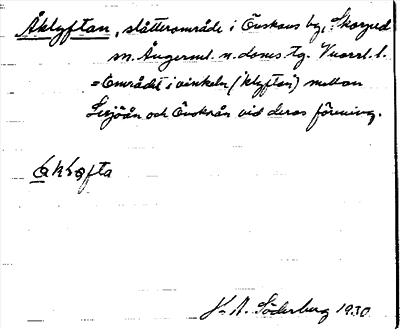 Åklyftan, slåtterområde i Önskans by, Skorped
sn. Ångerml. n. doms. tg. Vuorrl. l.
= Området i vinkeln ('klyftan') mellan
Sexjöån och Önskeån vid deras förening.
K. A. Söderberg 1930